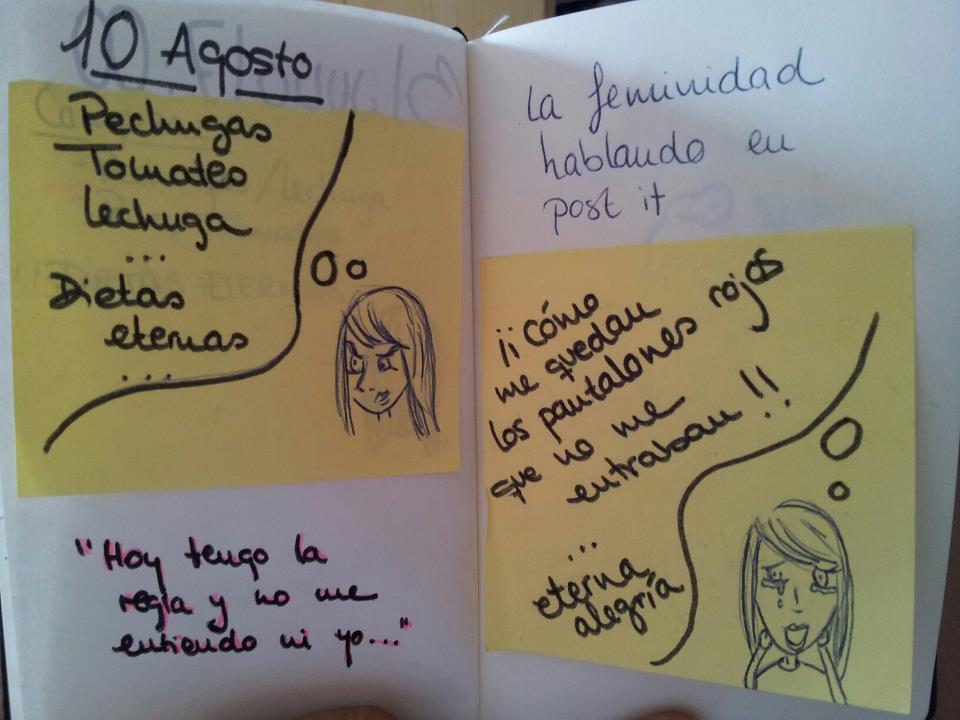 10 Agosto
Pechugas
Tomates
Lechuga
...
Dietas
eternas
...
"Hoy tengo la
regla y no me
entiendo ni yo..."
La feminidad
hablando en
post it
¡¡Cómo
me quedan
los pantalones rojos
que no me
entraban!!
...
eterna
alegría